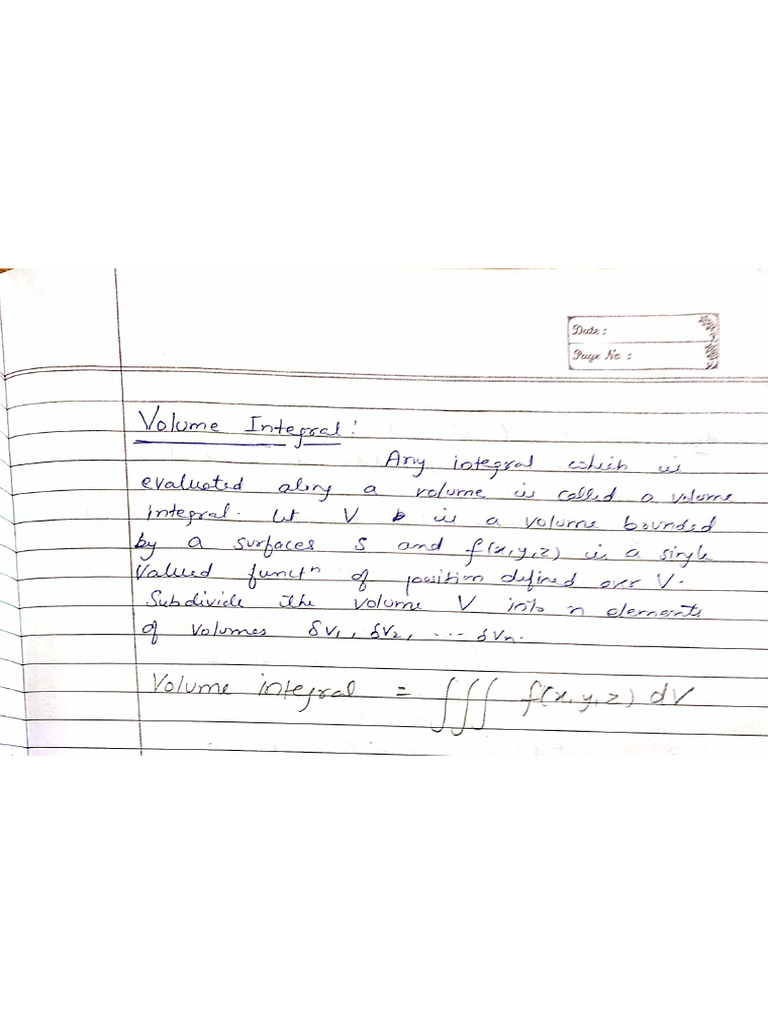 Date :
Page No :
Volume Integral :
Any integral which is
evaluated along a volume is called a volume
integral. Let V is a volume bounded
by a surfaces S and f(x,y,z) is a single
valued functⁿ of position defined over V.
Subdivide the volume V into n elements
of volumes δV₁, δV₂, ... δVₙ.
Volume integral = ∭ f(x,y,z) dV